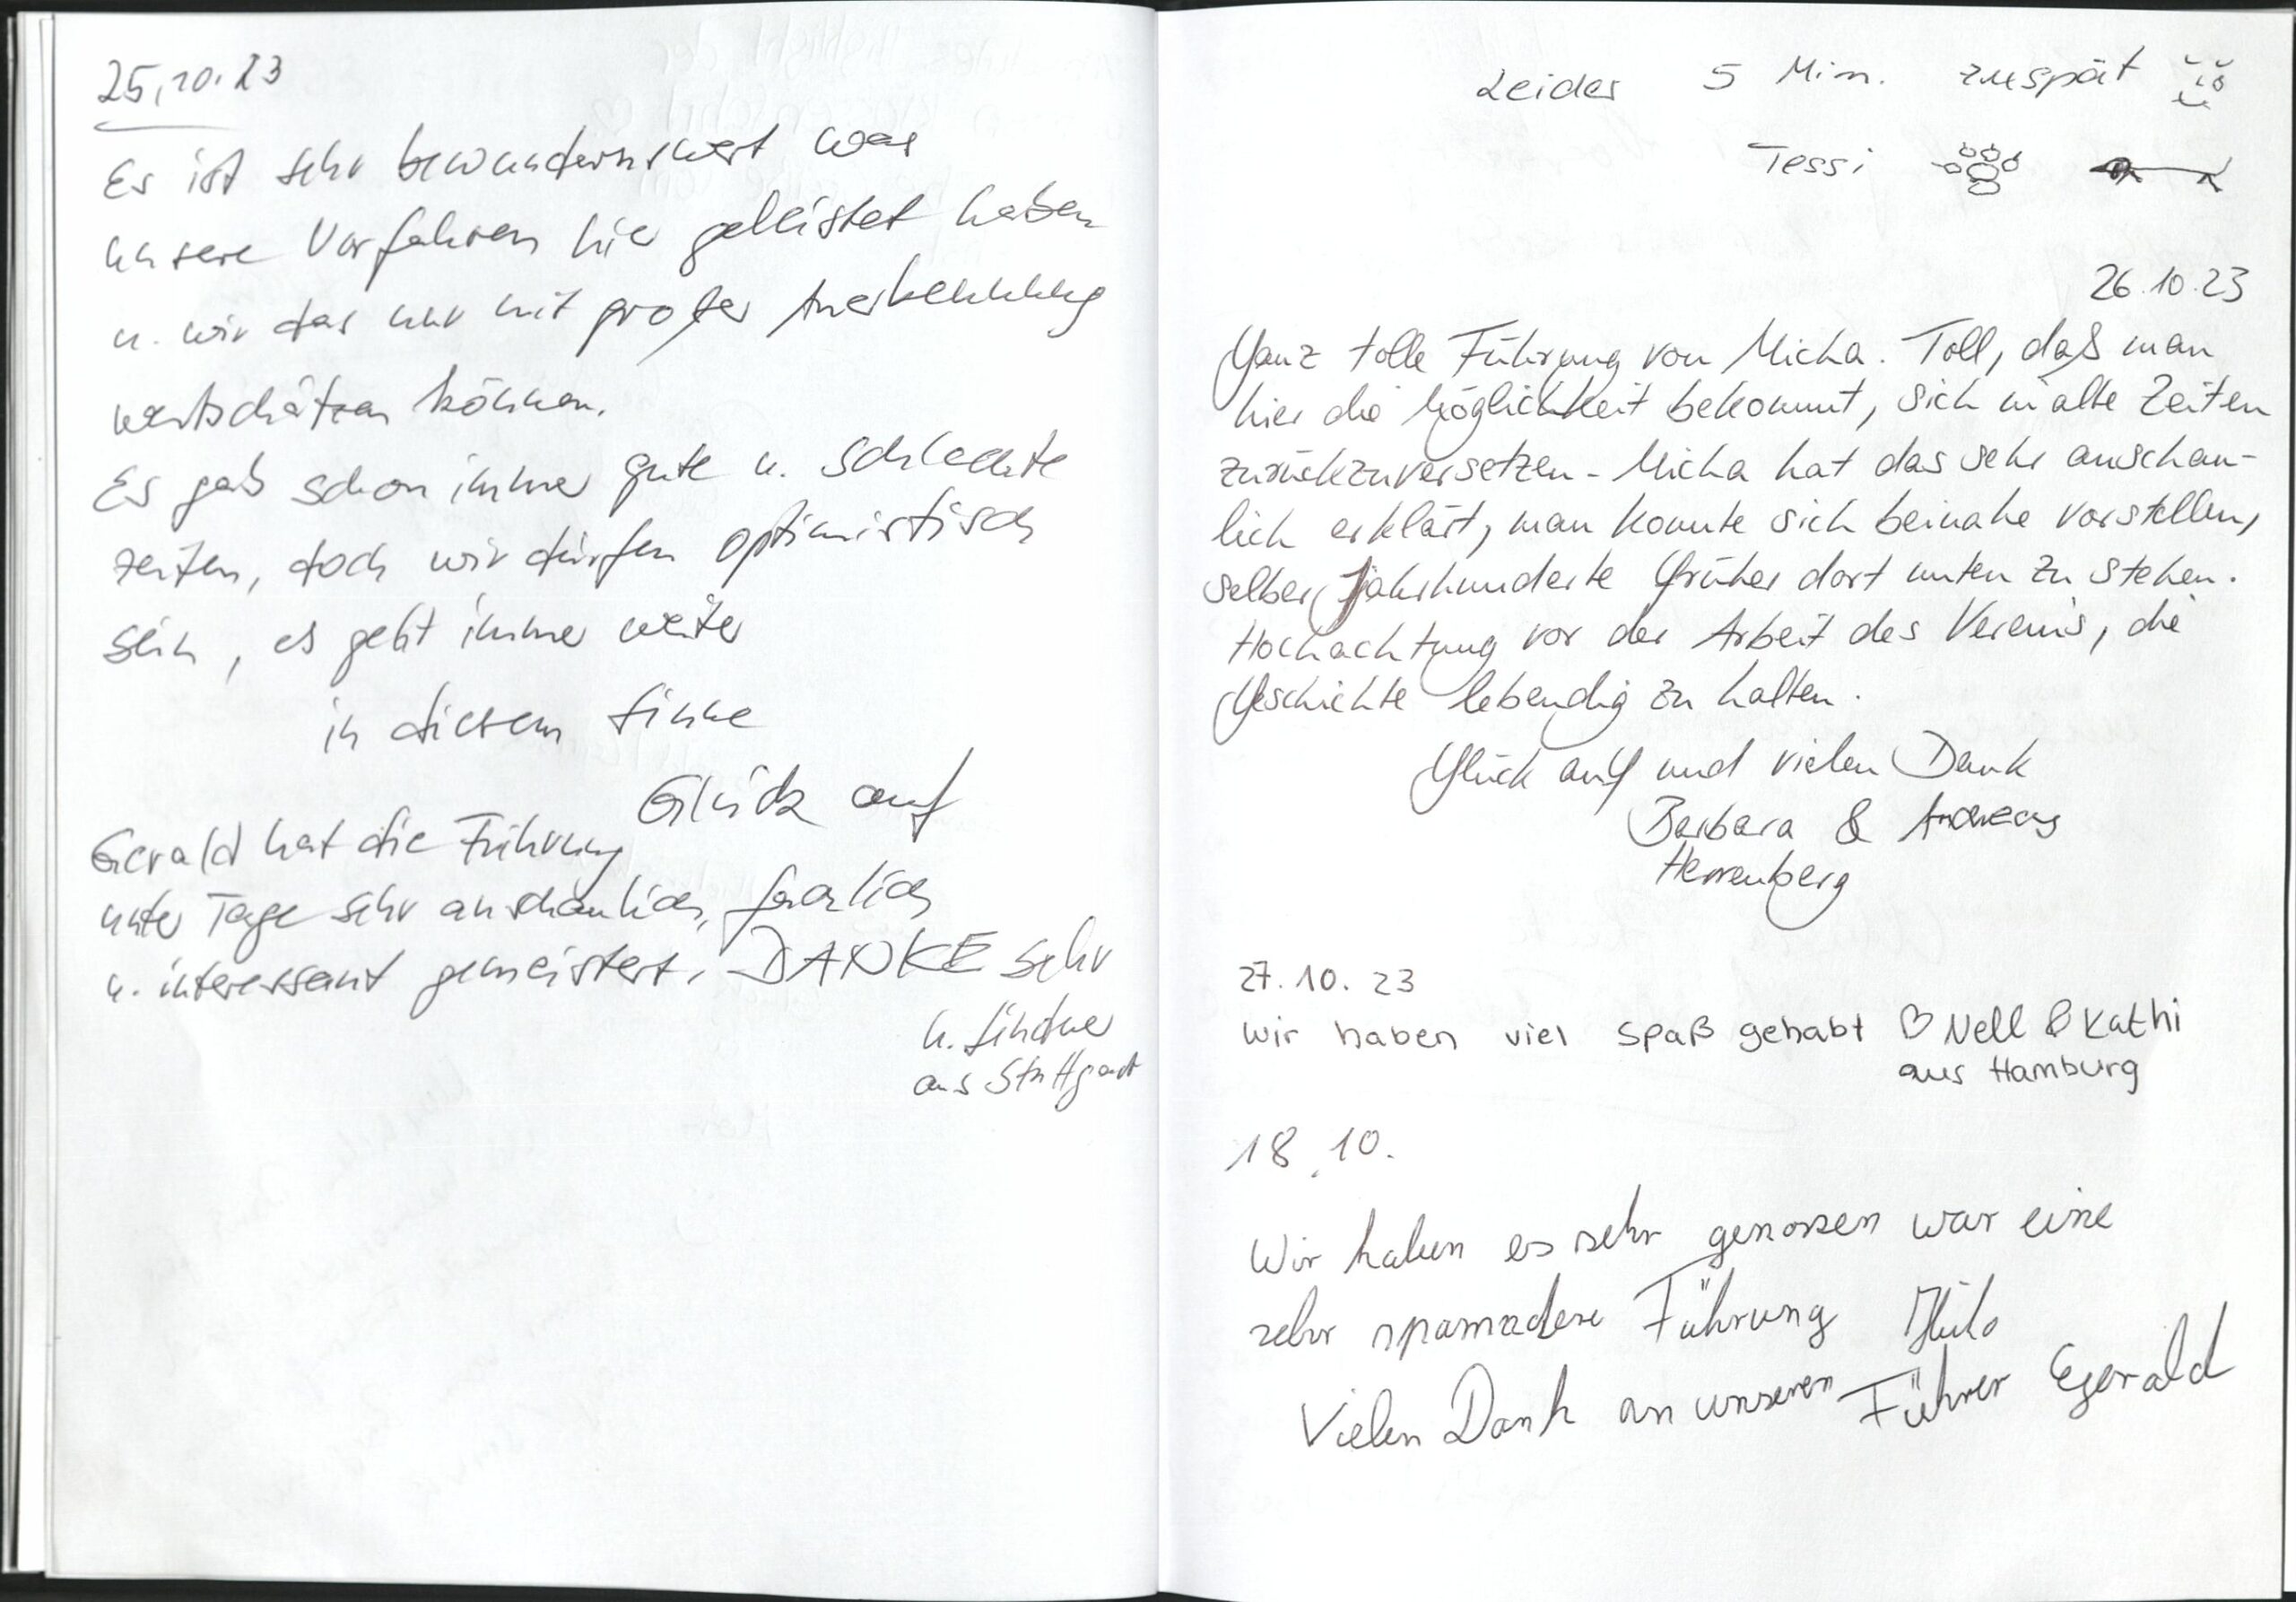 25.10.23
Es ist sehr bewundernswert was
unsere Vorfahren hie geleistet haben
u. wir das nur mit großer Anerkennung
wertschätzen können.
Es gab schon immer gute u. schlechte
zeiten, doch wir dürfen optimistisch
sein, es geht immer weiter
in diesem Sinne
Glück auf
Gerald hat die Führung
unter Tage sehr anschaulich, fachlich
u. interessant gemeistert. DANKE sehr
aus Stuttgart
Leider 5 Min. zuspät
Tessi
26.10.23
Ganz tolle Führung von Micha. Toll, daß man
hier die Möglichkeit bekommt, sich in alte Zeiten
zurückzuversetzen - Micha hat das sehr anschau-
lich erklärt, man konnte sich beinahe vorstellen,
selber Jahrhunderte früher dort unten zu stehen.
Hochachtung vor der Arbeit des Vereins, die
Geschichte lebendig zu halten.
Glück auf und vielen Dank
Barbara & Andreas
Herrenberg
27.10.23
wir haben viel spaß gehabt ♡ Nell & Kathi
aus Hamburg
18.10.
Wir haben es sehr genossen war eine
sehr Führung
Vielen Dank an unseren Führer Egerald